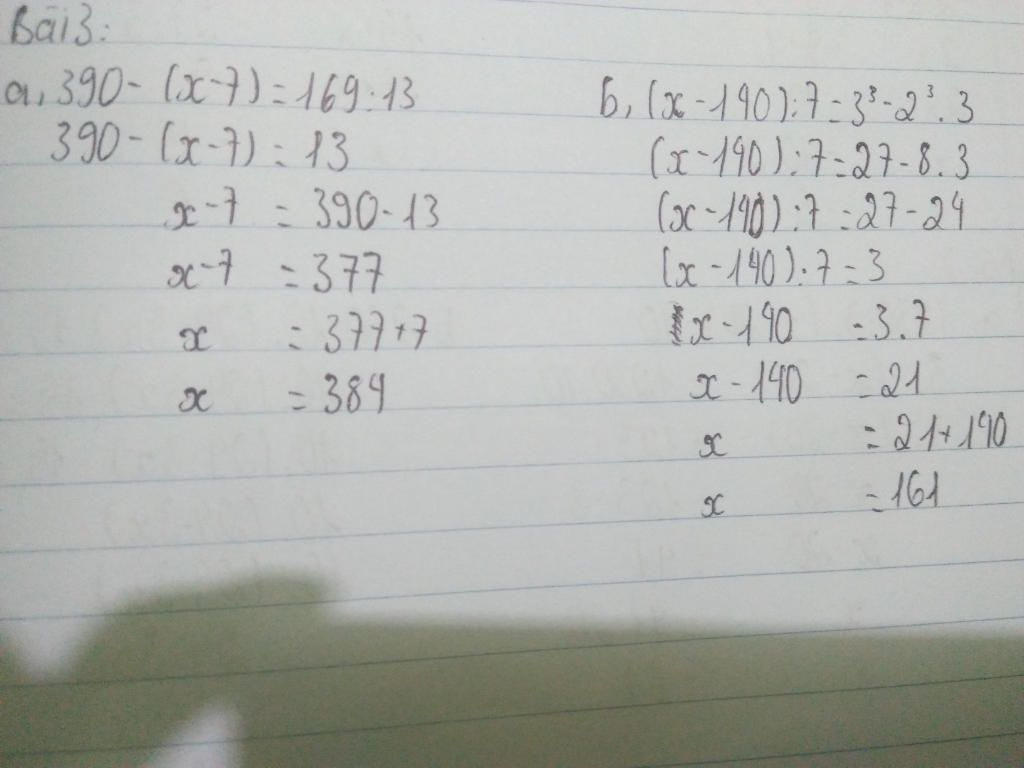 Bài 3:
a, 390 - (x-7) = 169 : 13
390 - (x-7) = 13
x - 7 = 390 - 13
x - 7 = 377
x = 377 + 7
x = 384
b, (x - 140) : 7 = 3³ - 2³ . 3
(x - 140) : 7 = 27 - 8 . 3
(x - 140) : 7 = 27 - 24
(x - 140) : 7 = 3
x - 140 = 3 . 7
x - 140 = 21
x = 21 + 140
x = 161